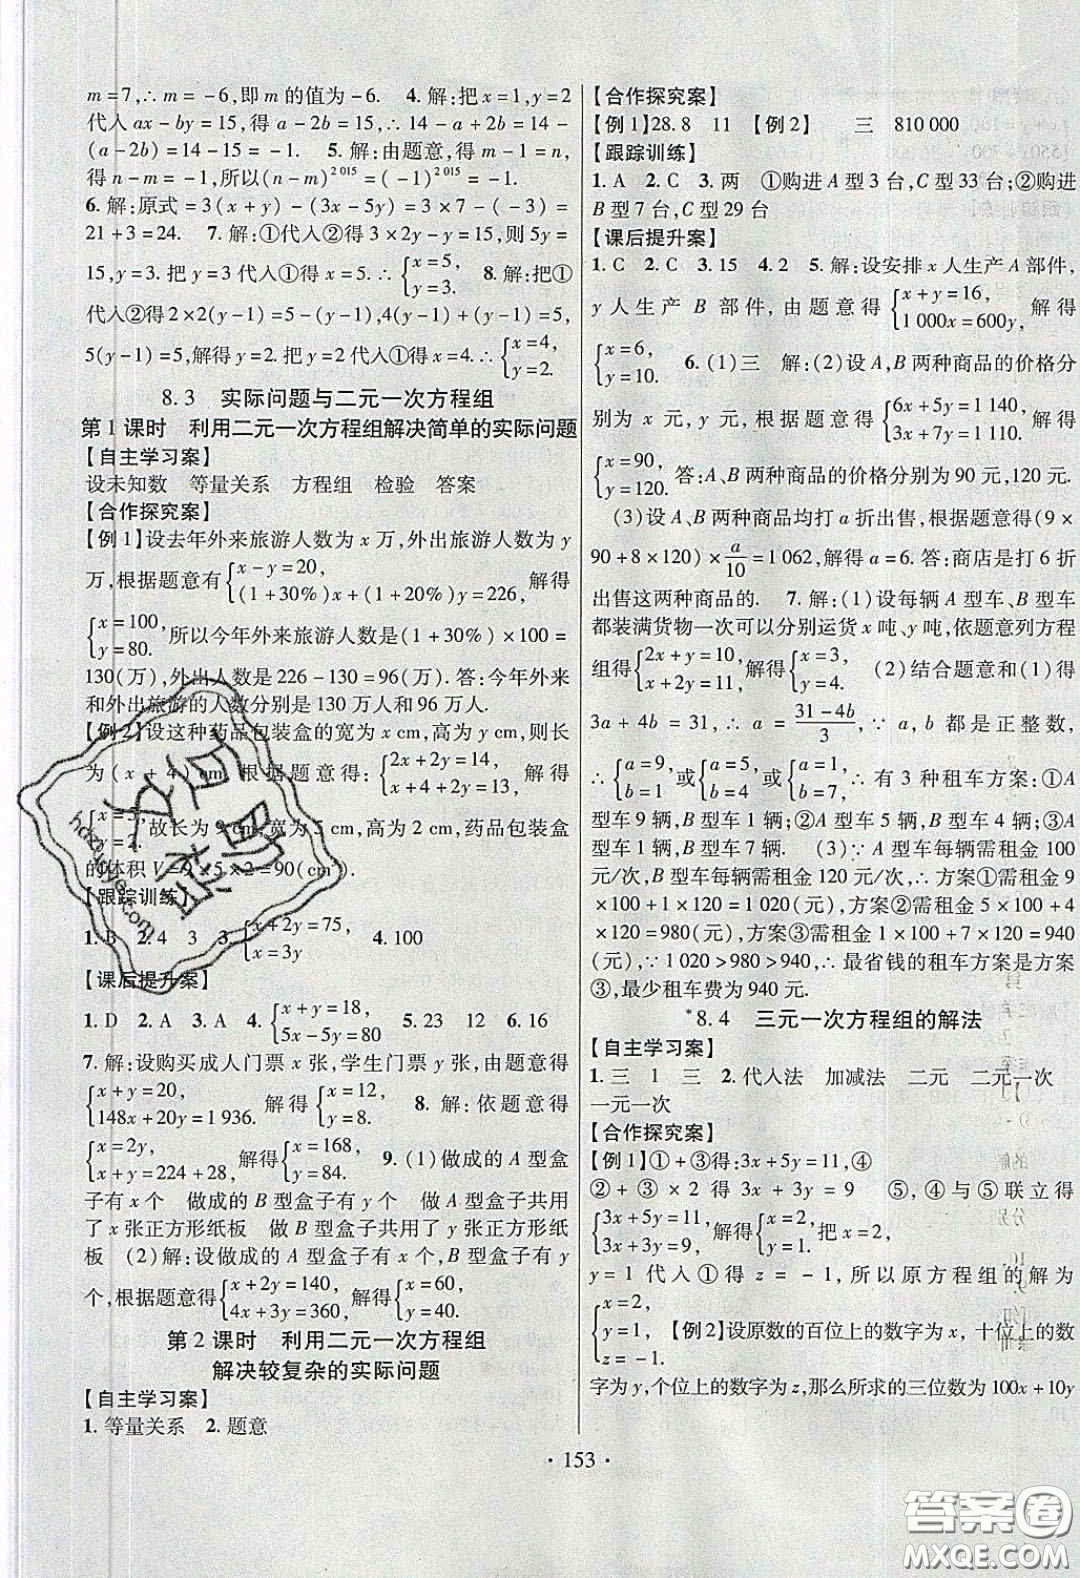 m=7,∴ m= -6,即 m 的值为 -6. 4. 解:把 x=1,y=2
代入 ax-by=15,得 a-2b=15,∴ 14-a+2b=14-
(a-2b)=14-15=-1. 5. 解:由题意,得 m-1=n,
得 n-m=-1,所以(n-m)²⁰¹⁵=(-1)²⁰¹⁵=-1.
6. 解:原式=3(x+y)-(3x-5y)=3×7-(-3)=
21+3=24. 7. 解:①代入②得 3×2+y=5y,则 5y=
15,y=3. 把 y=3 代入①得 x=5. ∴ {x=5, y=3. 8. 解:把①
代入②得 2×2(y-1)=5-(y-1),4(y-1)+(y-1)=5,
5(y-1)=5,解得 y=2. 把 y=2 代入①得 x=4. ∴ {x=4, y=2.
8.3 实际问题与二元一次方程组
第 1 课时 利用二元一次方程组解决简单的实际问题
【自主学习案】
设未知数 等量关系 方程组 检验 答案
【合作探究案】
【例 1】设去年外来旅游人数为 x 万,外出旅游人数为 y
万,根据题意有 {x-y=20, (1+30%)x+(1+20%)y=226, 解得
{x=100, y=80. 所以今年外来旅游人数是(1+30%)×100=
130(万),外出人数是 226-130=96(万). 答:今年外来
和外出旅游的人数分别是 130 万人和 96 万人.
【例 2】设这种药品包装盒的宽为 x cm,高为 y cm,则长
为(x+4) cm, 根据题意得: {2x+2y=14, x+4+2y=13, 解得
{x=5, y=2. 故长为 9 cm,宽为 5 cm,高为 2 cm,药品包装盒
的体积 V=9×5×2=90(cm³).
【跟踪训练】
1. B 2. 4 3 3. {x+2y=75, x=3y 4. 100
【课后提升案】
1. D 2. A 3. A 4. {x+y=18, 5x-5y=80 5. 23 12 6. 16
7. 解:设购买成人门票 x 张,学生门票 y 张,由题意得
{x+y=20, 148x+20y=1 936. 解得 {x=12, y=8. 8. 解:依题意得
{x=2y, x+y=224+28, 解得 {x=168, y=84. 9. (1)做成的 A 型盒
子有 x 个 做成的 B 型盒子有 y 个 做 A 型盒子共用
了 x 张正方形纸板 做 B 型盒子共用了 y 张正方形纸
板 (2)解:设做成的 A 型盒子有 x 个,B 型盒子有 y
个,根据题意得 {x+2y=140, 4x+3y=360, 解得 {x=60, y=40.
第 2 课时 利用二元一次方程组
解决较复杂的实际问题
【自主学习案】
1. 等量关系 2. 题意
【合作探究案】
【例 1】28.8 11 【例 2】 三 810 000
【跟踪训练】
1. A 2. C 3. 两 ①购进 A 型 3 台,C 型 33 台;②购进
B 型 7 台,C 型 29 台
【课后提升案】
1. C 2. C 3. 15 4. 2 5. 解:设安排 x 人生产 A 部件,
y 人生产 B 部件,由题意得 {x+y=16, 1 000x=600y, 解得
{x=6, y=10. 6. (1)三 解:(2)设 A,B 两种商品的价格分
别为 x 元,y 元,由题意得 {6x+5y=1 140, 3x+7y=1 110. 解得
{x=90, y=120. 答:A、B 两种商品的价格分别为 90 元,120 元.
(3)设 A、B 两种商品均打 a 折出售,根据题意得(9×
90+8×120)×a/10=1 062,解得 a=6. 答:商店是打 6 折
出售这两种商品的. 7. 解:(1)设每辆 A 型车、B 型车
都装满货物一次可以分别运货 x 吨、y 吨,依题意列方程
组得 {2x+y=10, x+2y=11, 解得 {x=3, y=4. (2)结合题意和(1)得
3a+4b=31,∴ a=(31-4b)/3,∵ a,b 都是正整数,
∴ {a=9, b=1 或 {a=5, b=4 或 {a=1, b=7 ∴ 有 3 种租车方案:①A
型车 9 辆,B 型车 1 辆;②A 型车 5 辆,B 型车 4 辆;③A
型车 1 辆,B 型车 7 辆. (3)∵ A 型车每辆需租金 100
元/次,B 型车每辆需租金 120 元/次,∴ 方案①需租金 9
×100+1×120=1 020(元),方案②需租金 5×100+4
×120=980(元),方案③需租金 1×100+7×120=940
(元),∵ 1 020>980>940,∴ 最省钱的租车方案是方案
③,最少租车费为 940 元.
*8.4 三元一次方程组的解法
【自主学习案】
1. 三 1 三 2. 代入法 加减法 二元 二元一次
一元一次
【合作探究案】
【例 1】①+③得:3x+5y=11,④
②+③×2 得 3x+3y=9 ⑤,④与⑤联立得
{3x+5y=11, 3x+3y=9, 解得 {x=2, y=1. 把 x=2,
y=1 代入①得 z=-1,所以原方程组的解为
{x=2, y=1, z=-1. 【例 2】设原数的百位上的数字为 x, 十位上的数
字为 y,个位上的数字为 z,那么所求的三位数为 100x+10y
· 153 ·
答案圈
MXQE.COM